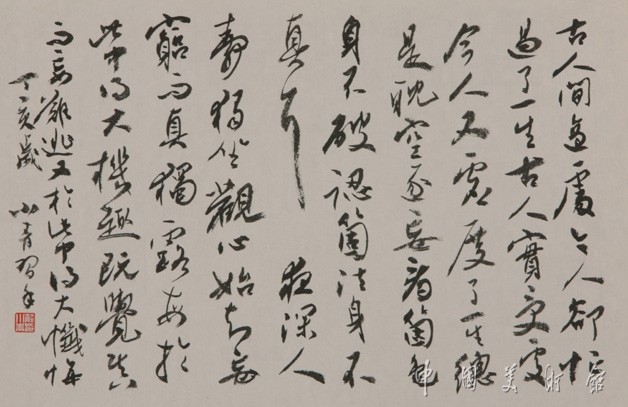 古人閒適處今人卻忙
過了一生古人實受處
今人又虛度了一生總
是耽空逐妄看箇色
身不破認箇法身不
真耳 夜深人
靜獨坐觀心始知妄
窮而真獨露每於
此中得大機趣既覺真
而妄難逃又於此中得大懺悔
丁亥歲
中國美術館